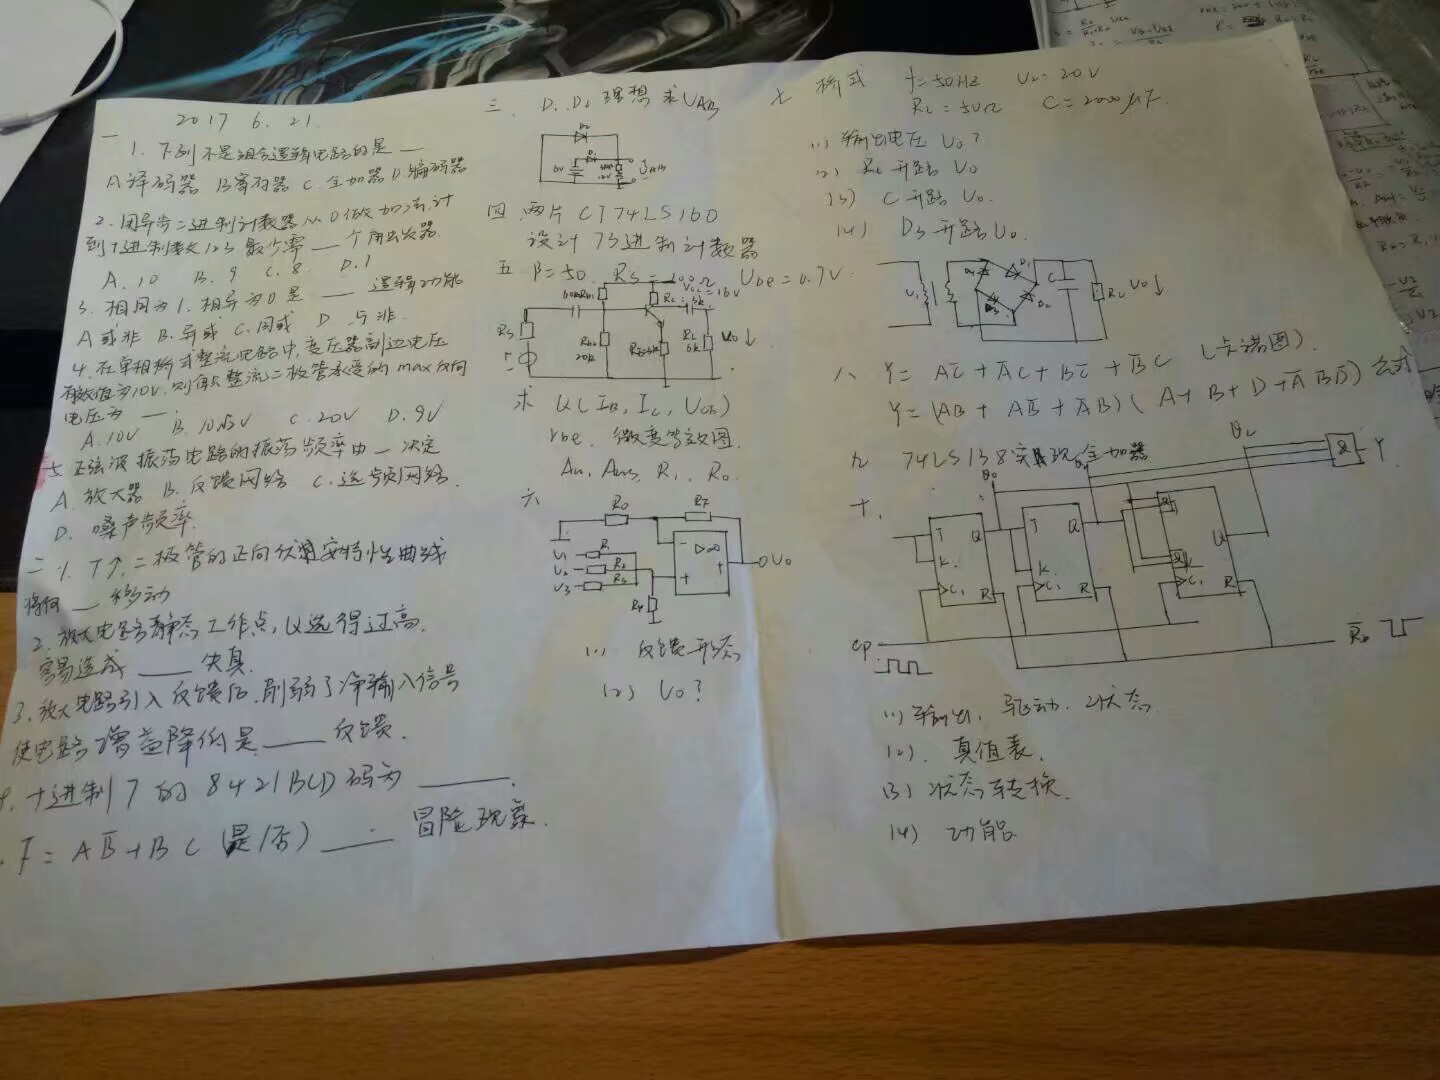 2017 6.21.
一
1. 下列不是组合逻辑电路的是 __
A.译码器 B.寄存器 C.全加器 D.编码器
2. 用异步二进制计数器从0做加法,计
到十进制数123 最少需 __ 个触发器.
A.10 B.9 C.8 D.7
3. 相同为1.相异为0是 __ 逻辑功能
A 或非 B.异或 C.同或 D.与非.
4. 在单相桥式整流电路中,变压器副边电压
有效值为10V.则每只整流二极管承受的max反向
电压为 __.
A.10V B.10√2V C.20V D.9V
五 正弦波振荡电路的振荡频率由 __ 决定
A. 放大器 B. 反馈网络 C.选频网络.
D. 噪声频率.
二 1. T↑,二极管的正向伏安特性曲线
将向 __ 移动
2. 放大电路静态工作点,Q选得过高.
容易造成 __ 失真.
3. 放大电路引入反馈后.削弱了净输入信号
使电路增益降低是 __ 反馈.
十进制7的8421BCD码为 __.
F = AB̅+BC (是/否) __ 冒险现象.
三. D1.D2 理想 求UAB
D2
D1
6V
12V
UAB
四.两片 CT74LS160
设计 73进制计数器
五 β=50. Rs=200Ω Ube=0.7V.
Rb1
RC
Rs
Rb2
20k
RL
6k
U0
求 Q(IB, IC, UCE)
rbe. 微变等效图.
Au, Aus, Ri, Ro.
六
R0
RF
V1
V2
V3
R1
R2
R3
R4
▷∞
−
+
+
U0
(1) 反馈形态
(2) U0?
七 桥式 f=50Hz U2=20V
RL=50Ω C=2000μF.
(1) 输出电压 U0?
(2) RL开路 U0
(3) C开路 U0.
(4) D3开路U0.
U1
D4
D1
D3
D2
C
RL
U0
八 Y= AC̅+A̅C+BC̅+B̅C (卡诺图).
Y=(AB+AB̅+A̅B)(A+B+D+A̅B̅D̅) 公式
九 74LS138实现全加器
十.
Q0
Q1
Q2
& Y
J Q
K
C1 R
J Q
K
C1 R
&J Q
&K
C1 R
CP
R̅D
(1) 输出, 驱动, 状态.
(2) 真值表.
(3) 状态转换.
(4) 功能